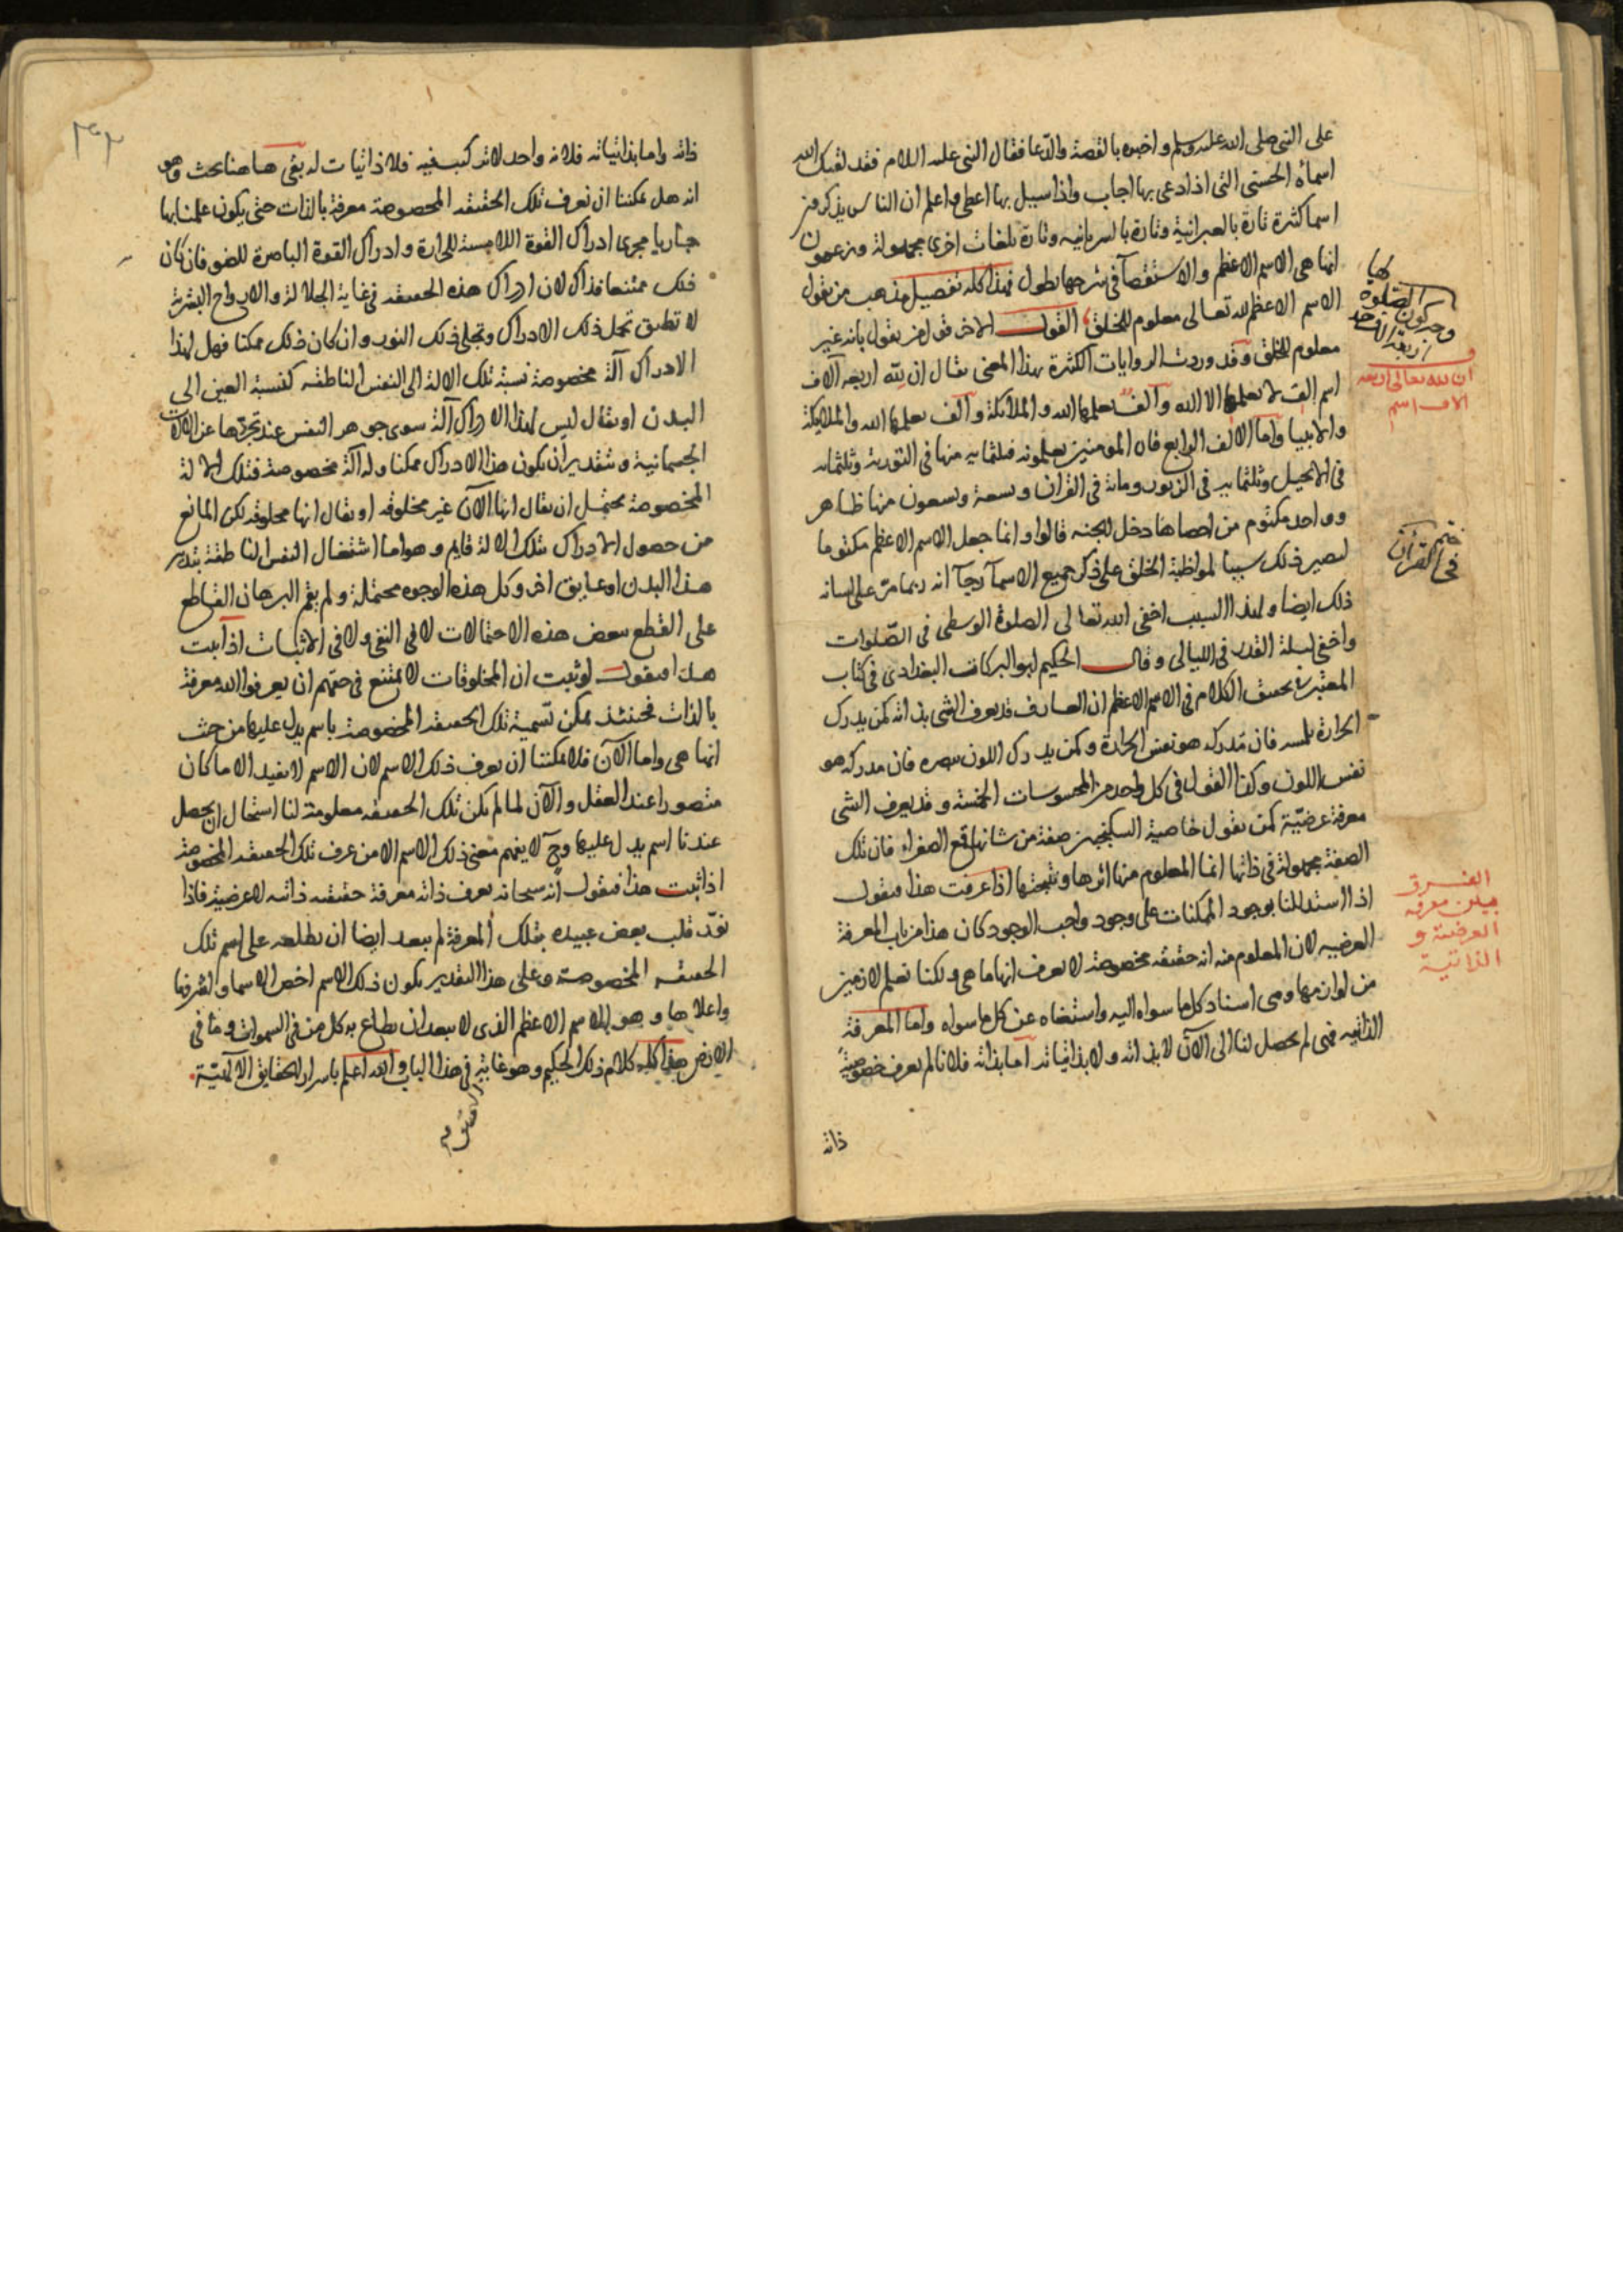 على النبى صلى الله عليه وسلم واخبره بالقصة والدعا فقال النبى عليه السلام فقد لقنك الله
اسماه الحسنى التى اذا دعى بها اجاب واذا سيل بها اعطى واعلم ان الناس يذكرون
اسما كثرة تارة بالعبرانية وتارة بالسريانيه وتارة بلغات اخرى مجهولة ويزعمون
انها هى الاسم الاعظم والاستقصآ فى شرحها يطول فهذا كله تفصيل مذهب من يقول
الاسم الاعظم لله تعالى معلوم للخلق القول الاخر قول من يقول بانه غير
معلوم للخلق وقد وردت الروايات الكثرة بهذا المعنى يقال ان لله اربعه آلاف
اسم الف لا يعلمها الا الله وآلف يعلمها الله والملائكة وآلف يعلمها الله والملايكة
والانبيا واما الالف الرابع فان المومنين يعلمونه فثلثمايه منها فى التورية وثلثمايه
فى الانجيل وثلثمايه فى الزبور وماية فى القران وتسعة وتسعون منها ظاهر
وواحد مكتوم من احصاها دخل الجنه قالوا وانما جعل الاسم الاعظم مكتوما
ليصير ذلك سببا لمواظبة الخلق على ذكر جميع الاسمآ رجآ انه ربما مر على لسانه
ذلك ايضا ولهذا السبب اخفى الله تعالى الصلوة الوسطى فى الصلوات
واخفى ليلة القدر فى الليالى وقال الحكيم ابو البركات البغدادى فى كتاب
المعتبر تحسن الكلام فى الاسم الاعظم ان العارف قد يعرف الشى بذاته كمن يدرك
الحرارة بلمسه فان مدركه هو نفس الحرارة وكمن يدرك اللون ببصره فان مدركه هو
نفس اللون وكذا القول فى كل واحد من المحسوسات الخمسة وقد يعرف الشى
معرفة عرضية كمن يقول خاصية السكنجبين صفة من شانها قمع الصفراء فان تلك
الصفة مجهولة فى ذاتها انما المعلوم منها اثرها ونتيجتها اذا عرفت هذا فنقول
اذا استدللنا بوجود الممكنات على وجود واجب الوجود كان هذا من باب المعرفة
العرضيه لان المعلوم منه انه حقيقه مخصوصة لا يعرف انها ما هى ولكنا نعلم لازمين
من لوازمها وهى اسناد كل ما سواه اليه واستغناه عن كل ما سواه واما المعرفة
الذاتيه فهى لم يحصل لنا الى الآن لا بذاته ولا بذاتياته اما بذاته فلانا لم يعرف خصوصية
ذاته
ان لله تعالى اربعه
الاف اسم
ختم
فى القرآن
الفرق
بين معرفه
العرضية و
الذاتية
ذاته واما بذاتياته فلانه واحد لا تركيب فيه فلا ذاتيات له بقى هاهنا بحث وهو
انه هل يمكننا ان نعرف تلك الحقيقه المخصوصة معرفة بالذات حتى يكون علمنا بها
جاريا مجرى ادراك القوة اللامسة للحرارة وادراك القوة الباصرة للضو فان كان
ذلك ممتنعا فذاك لان ادراك هذه الحقيقه فى غاية الجلالة والارواح البشرية
لا تطيق تحمل ذلك الادراك وتجلى ذلك النور وان كان ذلك ممكنا فهل لهذا
الادراك آلة مخصوصة نسبة تلك الالة الى النفس الناطقه كنسبة العين الى
البدن او يقال ليس لهذا الادراك آلة سوى جوهر النفس عند تجردها عن الآلات
الجسمانية وبتقدير ان يكون هذا الادراك ممكنا وله آلة مخصوصة فتلك الالة
المخصوصة يحتمل ان يقال انها الآن غير مخلوقه او يقال انها مخلوقه لكن المانع
من حصول الادراك بتلك الالة قايم وهو اما اشتغال النفس الناطقة بتدبير
هذا البدن او عايق اخر وكل هذه الوجوه محتملة ولم يقم البرهان القاطع
على القطع ببعض هذه الاحتمالات لا فى النفى ولا فى الاثبات اذا ثبت
هذا فنقول لو ثبت ان المخلوقات لا يمتنع فى حقهم ان يعرفوا الله معرفة
بالذات فحينئذ يمكن تسمية تلك الحقيقه المخصوصة باسم يدل عليها من حيث
انها هى واما الآن فلا يمكننا ان نعرف ذلك الاسم لان الاسم لا يفيد الا ما كان
متصورا عند العقل والآن لما لم يكن تلك الحقيقه معلومة لنا استحال ان يحصل
عندنا اسم يدل عليها وح لا يفهم معنى ذلك الاسم الا من عرف تلك الحقيقه المخصوصة
اذا ثبت هذا فنقول انه سبحانه يعرف ذاته معرفة حقيقيه ذاتيه لا عرضية فاذا
نور قلب بعض عبيده بتلك المعرفة لم يبعد ايضا ان يطلعه على اسم تلك
الحقيقه المخصوصة وعلى هذا التقدير يكون ذلك الاسم اخص الاسما واشرفها
واعلاها وهو الاسم الاعظم الذى لا يبعد ان يطاع به كل من فى السموات وما فى
الارض هذا كله كلام ذلك الحكيم وهو غايته فى هذا الباب والله اعلم باسرار الحقايق الآلهية